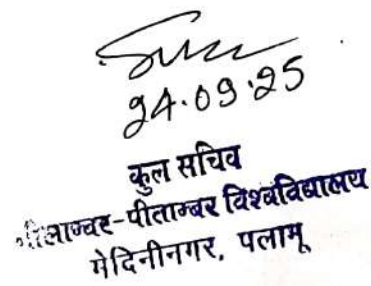 24.09.25
कुल सचिव
नीलाम्बर-पीताम्बर विश्वविद्यालय
मेदिनीनगर, पलामू